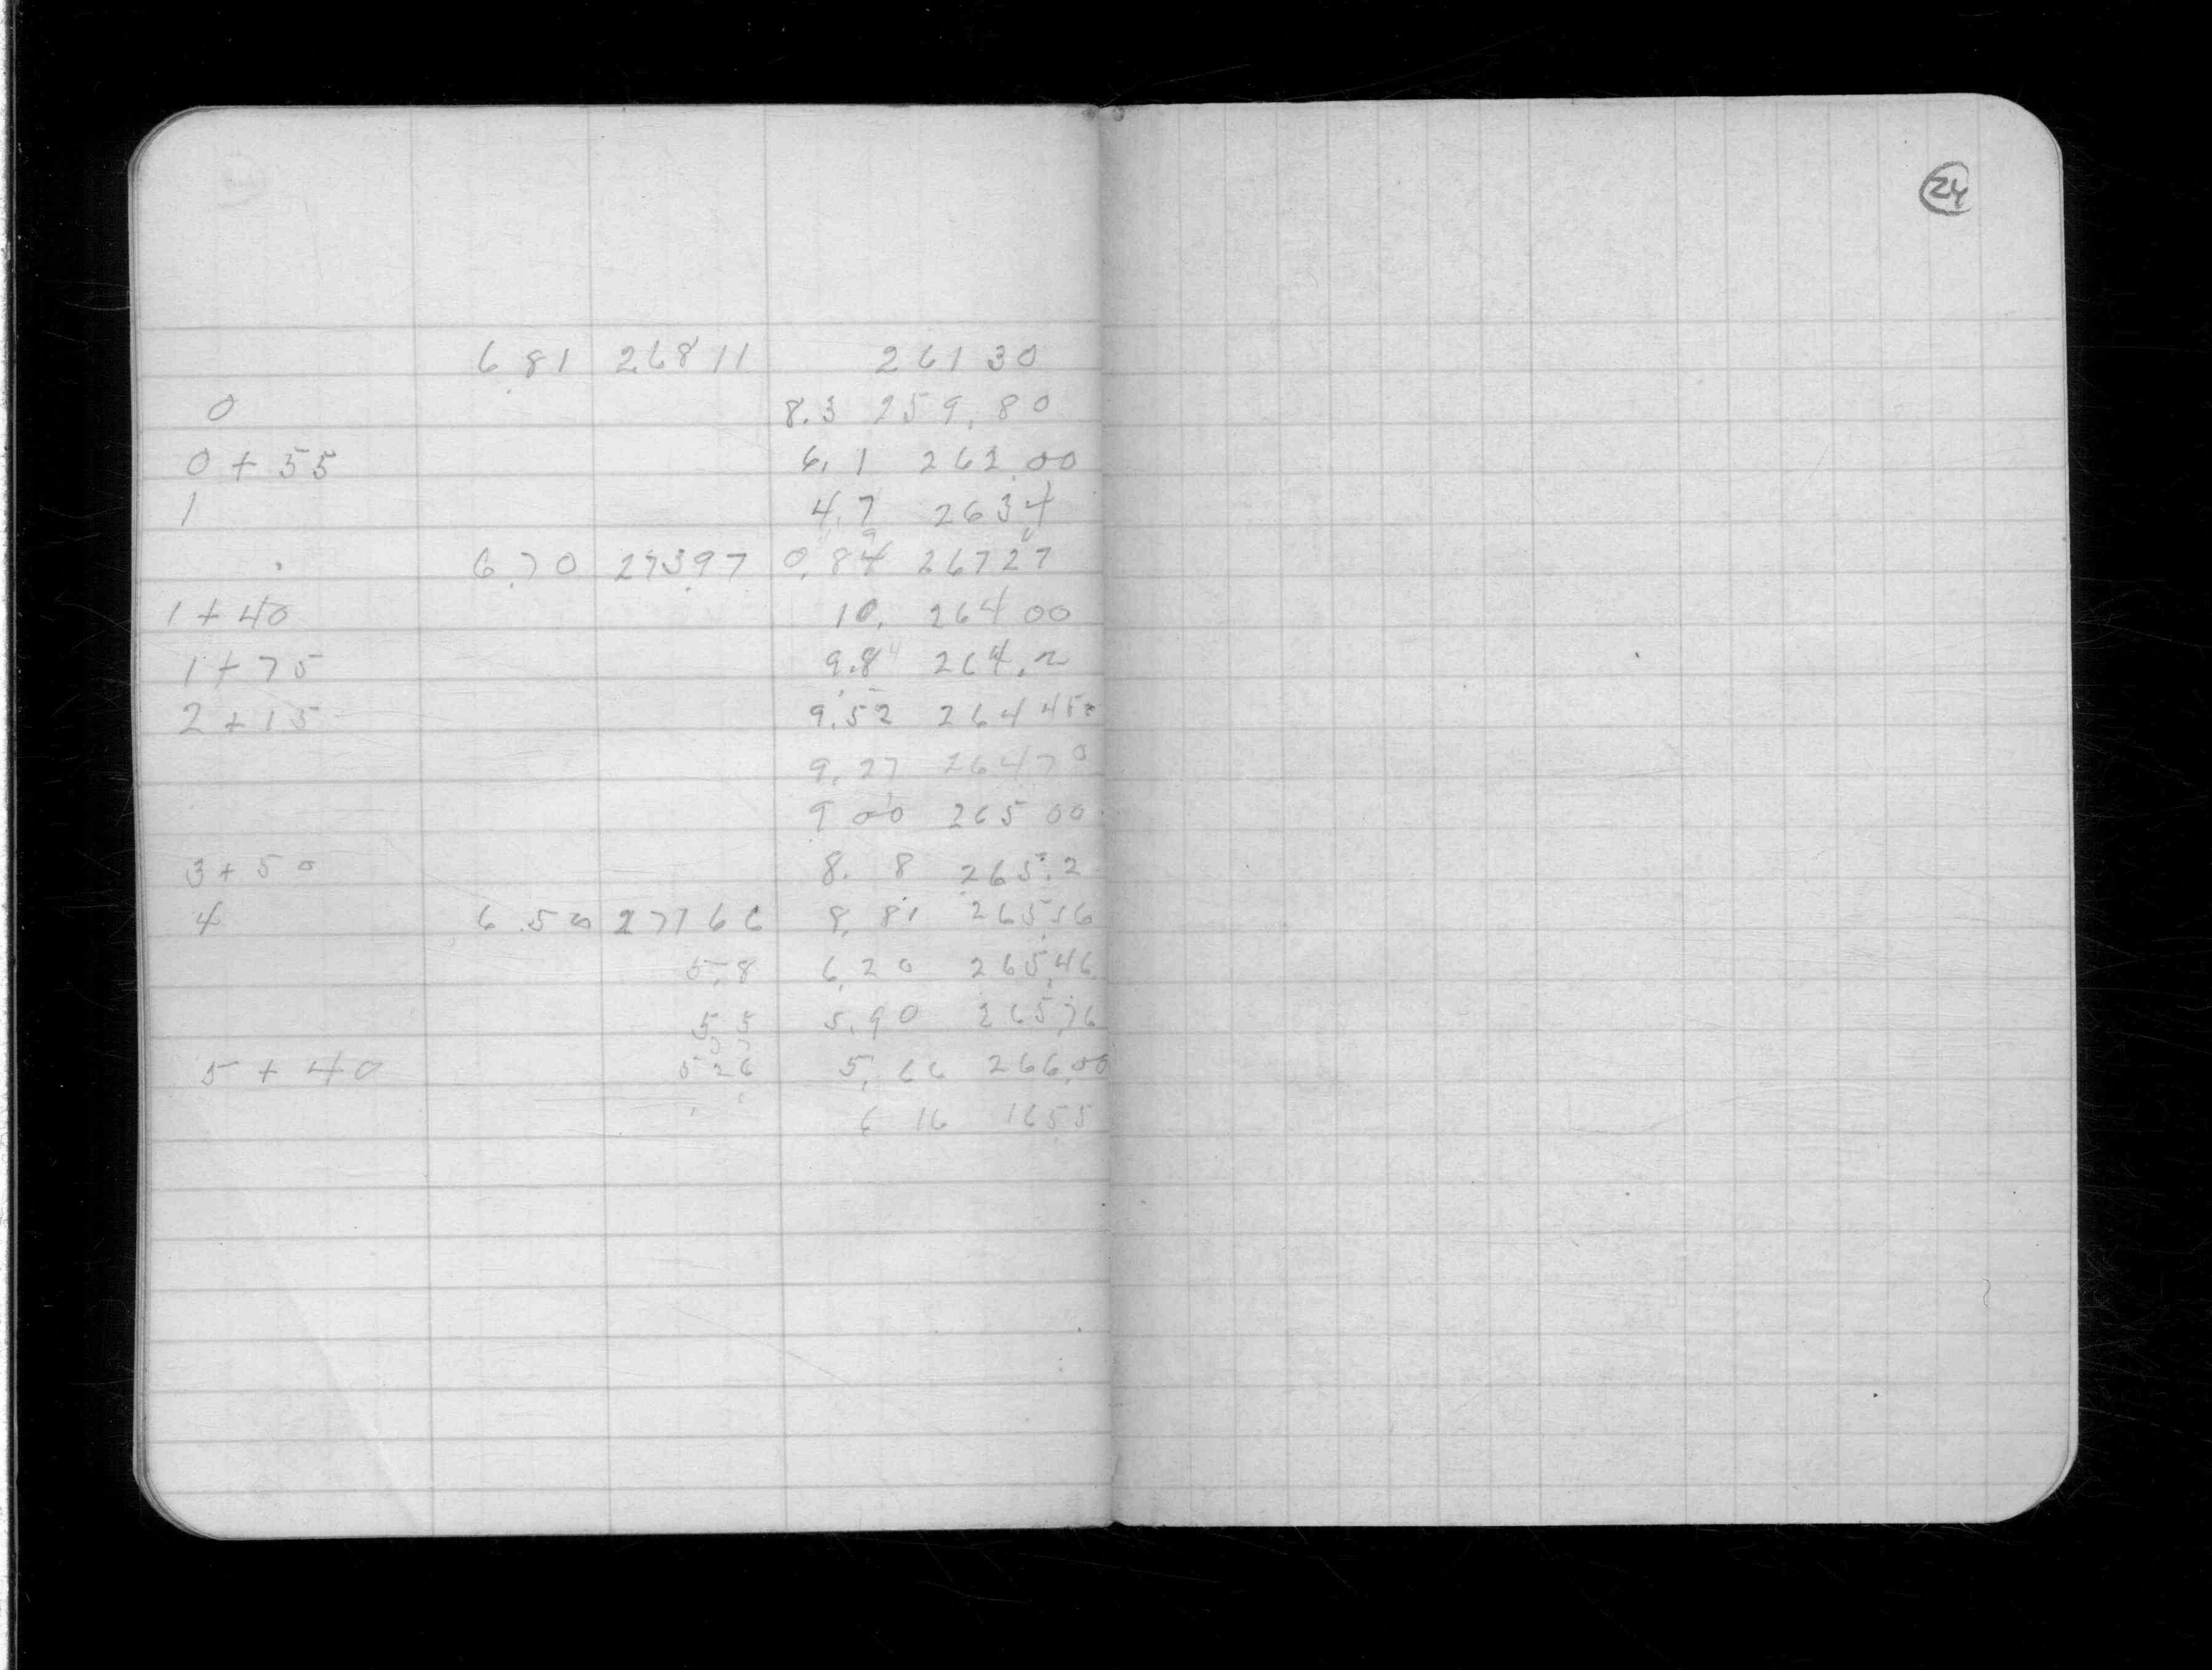 24
6 81 26811 26130
0 8.3 259.80
0 + 55 6.1 262.00
1 4.7 2634
6.70 27397 0.84 26727
1 + 40 10. 264 00
1 + 75 9.8 264.2
2 + 15 9.52 264 45
9.27 26470
9 00 265 00
3 + 50 8. 8 265.2
4 6.50 27166 8.81 265.16
5.8 6.20 265.46
5 5 5.90 265.76
5 + 40 5 26 5.66 266.00
6 16 1655